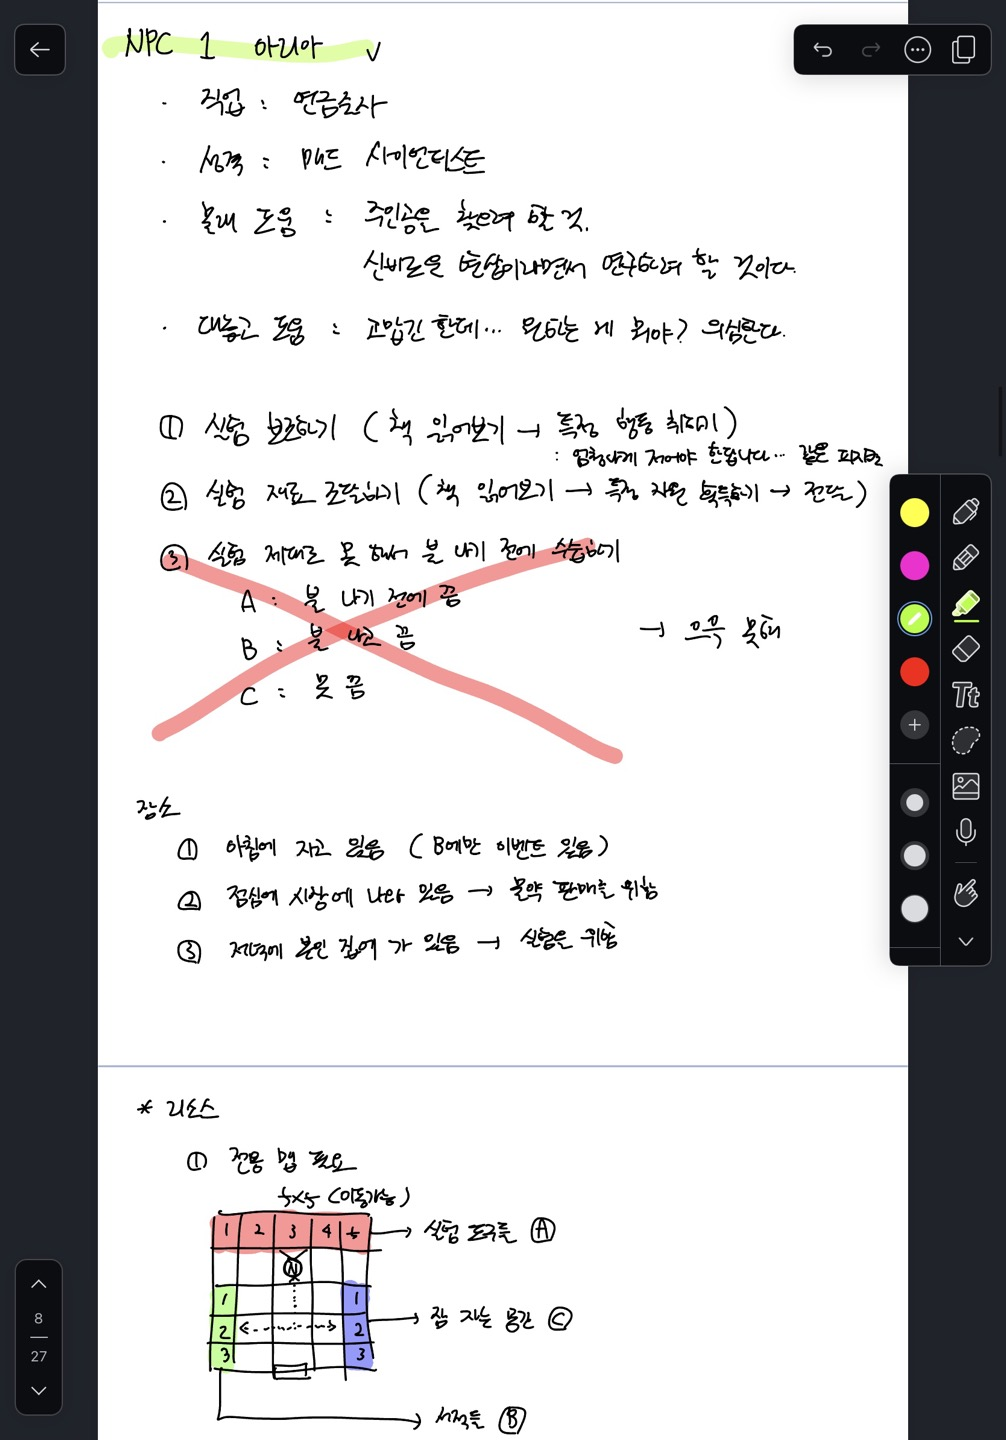 NPC 1 아리아 v
· 직업 : 연금술사
· 성격 : 매드 사이언티스트
· 몰래 도움 : 주인공을 찾으려 할 것.
신비로운 현상이라면서 연구하려 할 것이다.
· 대놓고 도움 : 고맙긴 한데... 원하는 게 뭐야? 의심한다.
① 실험 보조하기 ( 책 읽어보기 → 특정 행동 취하기 )
: 엄청나게 저어야 한답니다... 같은 피지컬
② 실험 재료 조달하기 ( 책 읽어보기 → 특정 자원 획득하기 → 전달 )
③ 실험 제대로 못 해서 불 나기 전에 수습하기
A : 불 나기 전에 끔
B : 불 나고 끔
C : 못 끔
→ 으윽 못해
장소
① 아침에 자고 있음 ( B에만 이벤트 있음 )
② 점심에 시장에 나와 있음 → 물약 판매를 위함
③ 저녁에 본인 집에 가 있음 → 실험을 위함
* 리소스
① 전용 맵 필요
5x5 (이동가능)
1 2 3 4 5 → 실험 도구들 Ⓐ
N
1 1
2 2 → 잠 자는 공간 Ⓒ
3 3
→ 서적들 Ⓑ
Tt
8
27